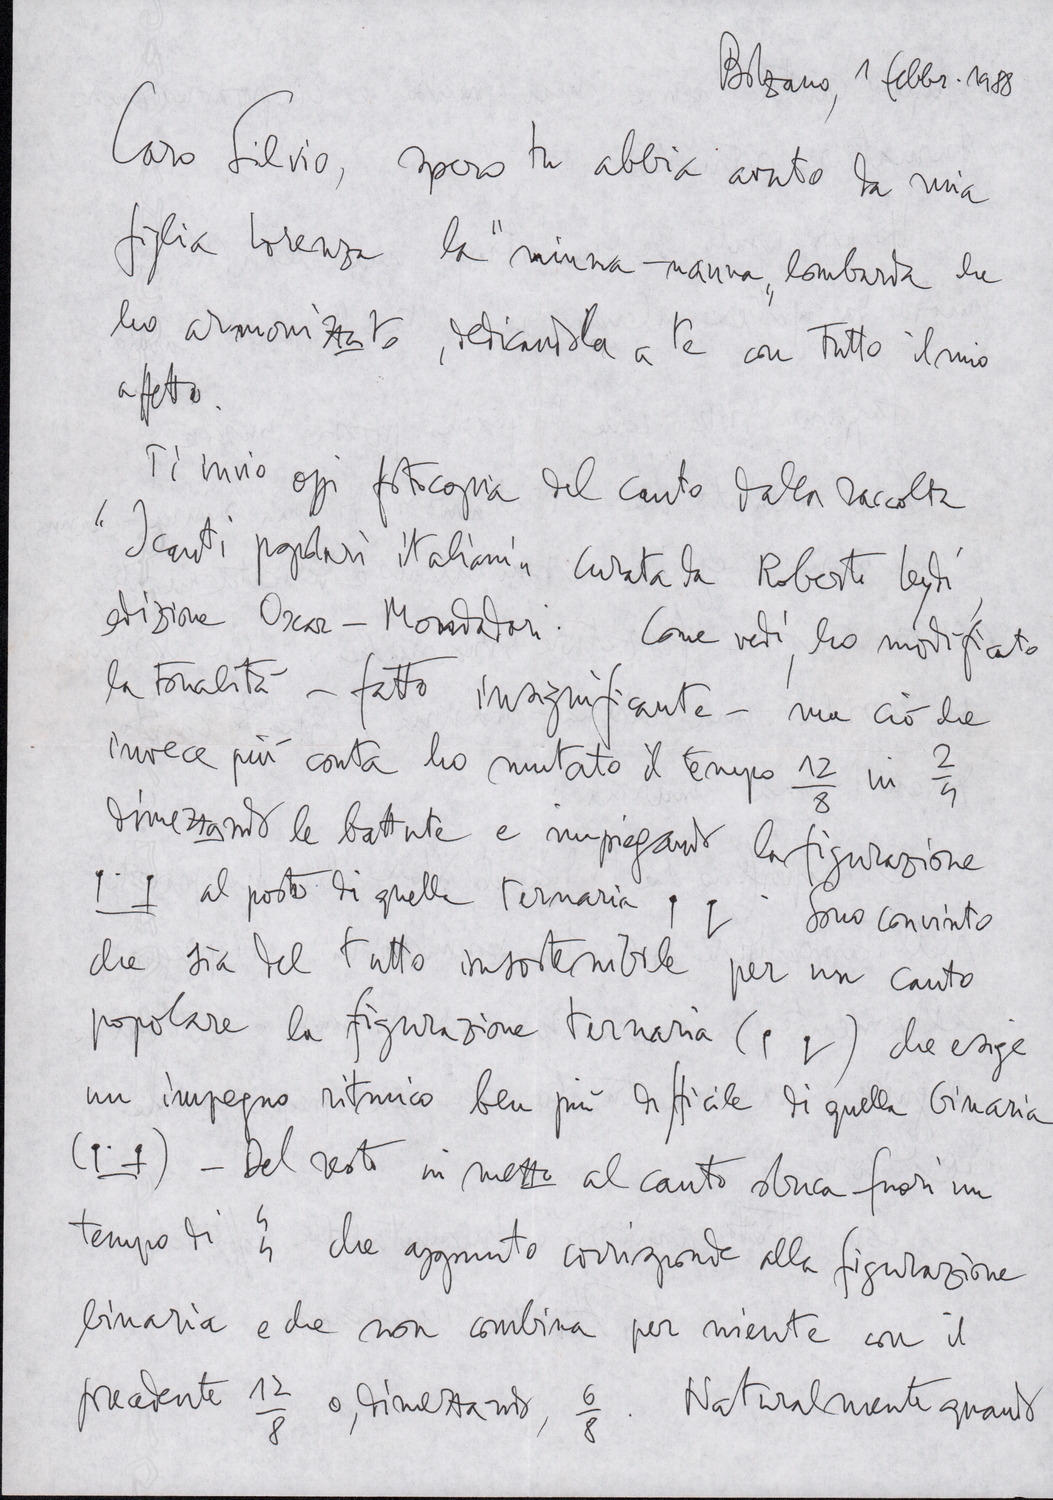 Bolzano, 1 febbr. 1988
Caro Silvio, spero tu abbia avuto da mia
figlia Lorenza la "ninna-nanna" lombarda che
ho armonizzato, dedicandola a te con tutto il mio
affetto.
Ti invio oggi fotocopia del canto dalla raccolta
"I canti popolari italiani" curata da Roberto Leydi,
edizione Oscar - Mondadori. Come vedi, ho modificato
la tonalità - fatto insignificante - ma ciò che
invece più conta ho mutato il tempo 12/8 in 2/4
dimezzando le battute e impiegando la figurazione
al posto di quella ternaria . Sono convinto
che sia del tutto insostenibile per un canto
popolare la figurazione ternaria ( ) che esige
un impegno ritmico ben più difficile di quella binaria
( ) - Del resto in mezzo al canto sbuca fuori un
tempo di 4/4 che appunto corrisponde alla figurazione
binaria e che non combina per niente con il
precedente 12/8 o, dimezzando, 6/8 . Naturalmente quando